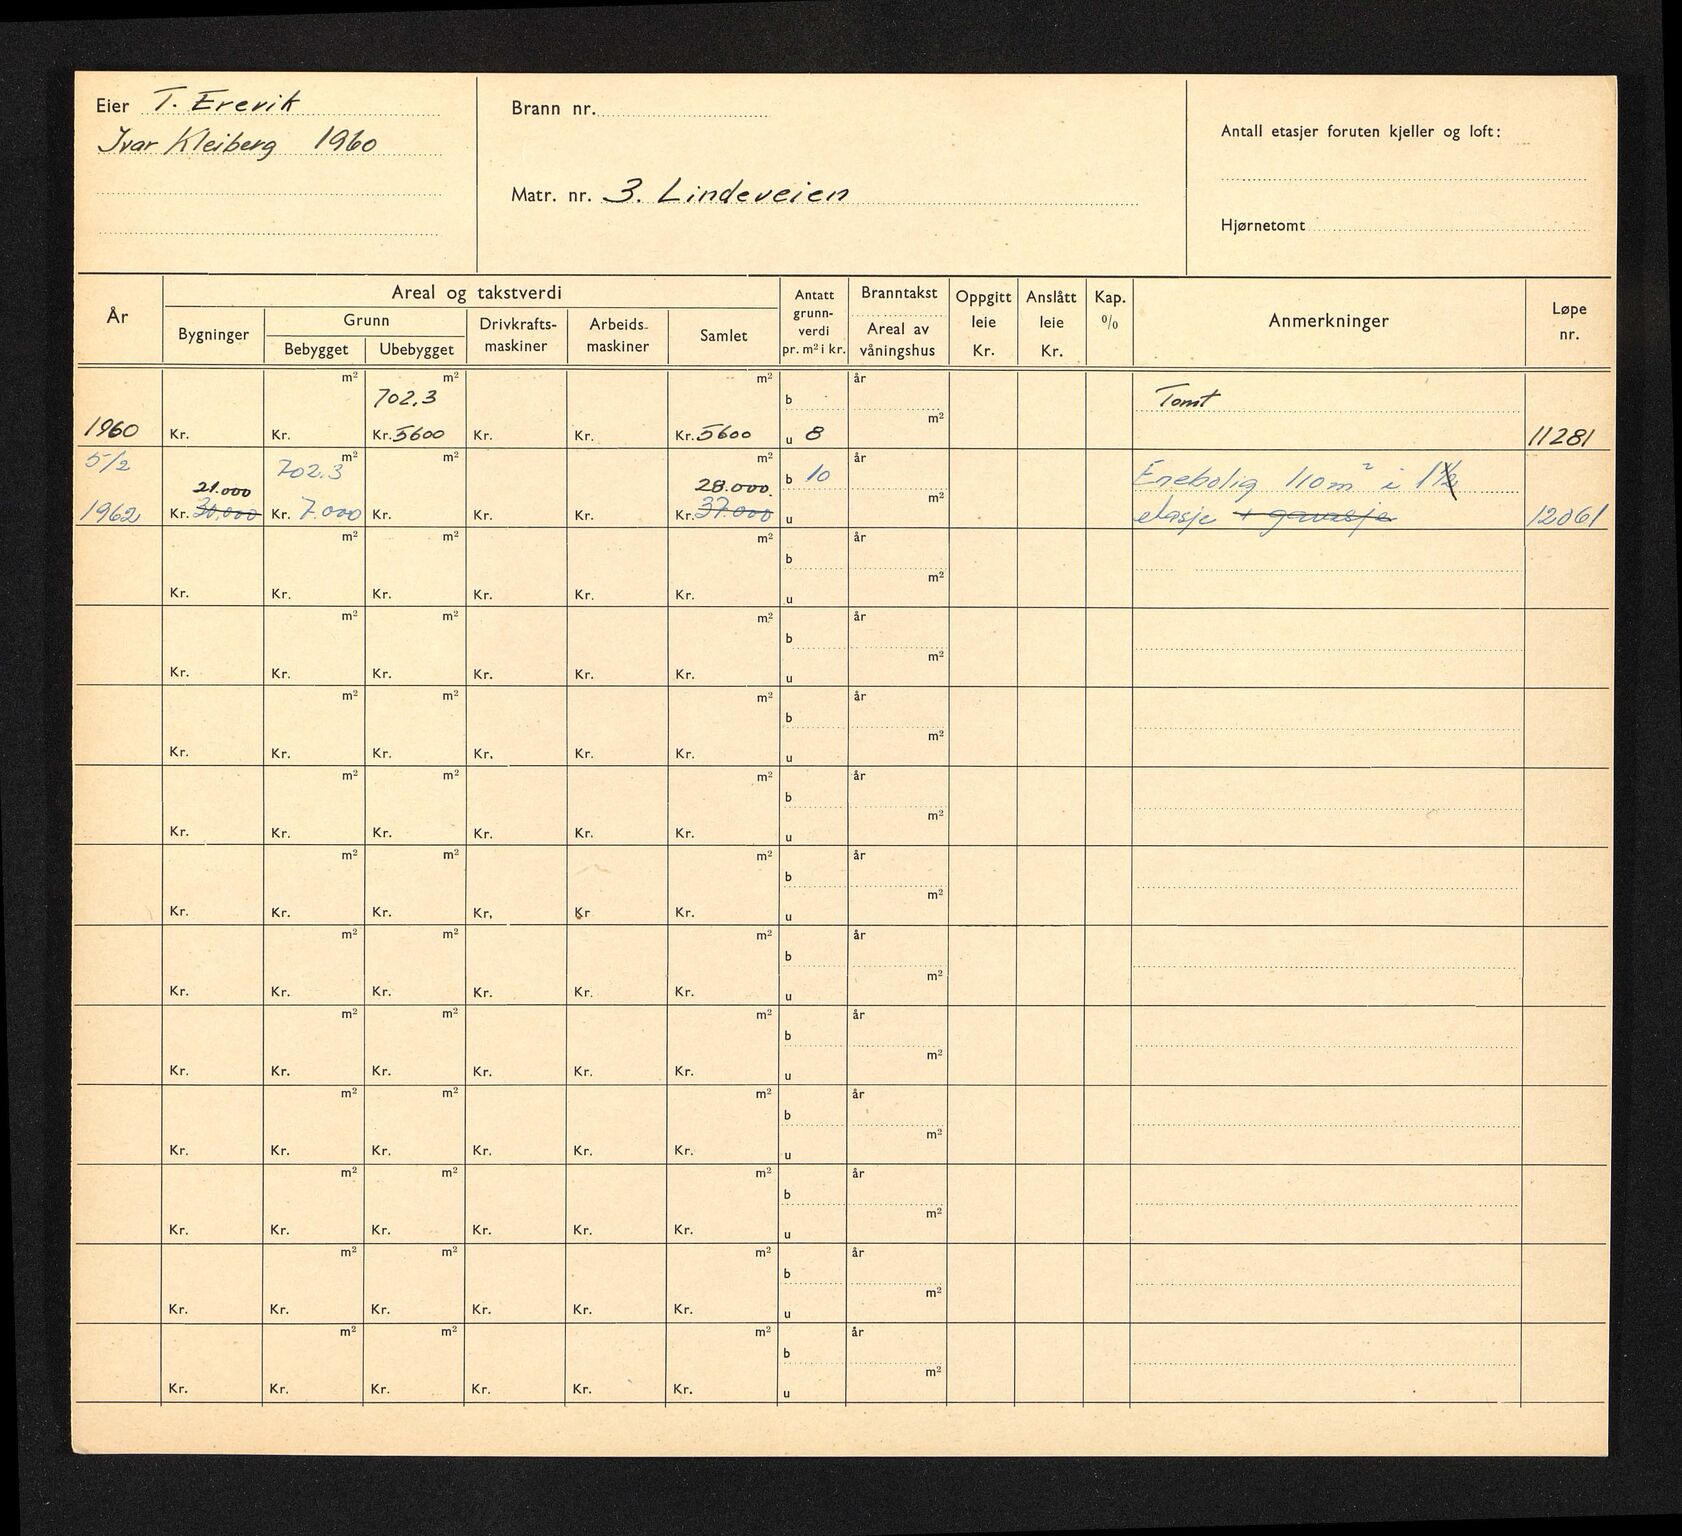 Eier T. Erevik
Ivar Kleiberg 1960
Brann nr.
Matr. nr. 3. Lindeveien
Antall etasjer foruten kjeller og loft:
Hjørnetomt
År
Areal og takstverdi
Bygninger
Grunn
Bebygget Ubebygget
Drivkrafts-
maskiner
Arbeids-
maskiner
Samlet
Antatt
grunn-
verdi
pr. m² i kr.
Branntakst
Areal av
våningshus
Oppgitt
leie
Kr.
Anslått
leie
Kr.
Kap.
%
Anmerkninger
Løpe
nr.
m² m² m² år
702.3 b Tomt
m²
1960 Kr. Kr. Kr. 5600 Kr. Kr. Kr. 5600 u 8 11281
5/2 702.3 m² m² m² b 10 år Enebolig 110 m² i 1½
21.000 28.000. m²
1962 Kr. 30,000 Kr. 7.000 Kr. Kr. Kr. Kr. 37.000 u etasje + garasje 12061
m² m² m² år
b
m²
Kr. Kr. Kr. Kr. Kr. Kr. u
m² m² m² år
b
m²
Kr. Kr. Kr. Kr. Kr. Kr. u
m² m² m² år
b
m²
Kr. Kr. Kr. Kr. Kr. Kr. u
m² m² m² år
b
m²
Kr. Kr. Kr. Kr. Kr. Kr. u
m² m² m² år
b
m²
Kr. Kr. Kr. Kr. Kr Kr. u
m² m² m² år
b
m²
Kr. Kr. Kr. Kr. Kr. Kr. u
m² m² m² år
b
m²
Kr. Kr. Kr. Kr. Kr. Kr. u
m² m² m² år
b
m²
Kr. Kr. Kr. Kr. Kr. Kr. u
m² m² m² år
b
m²
Kr. Kr. Kr. Kr. Kr. Kr. u
m² m² m² år
b
m²
Kr. Kr. Kr. Kr. Kr. Kr. u
m² m² m² år
b
m²
Kr. Kr. Kr. Kr. Kr. Kr. u